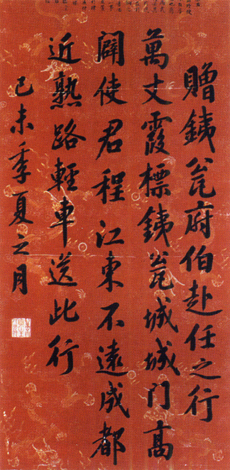 贈銕瓮府伯赴任之行
萬丈霞標銕瓮城城門高
闢使君程江東不遠成都
近熟路輕車送此行
己未季夏之月